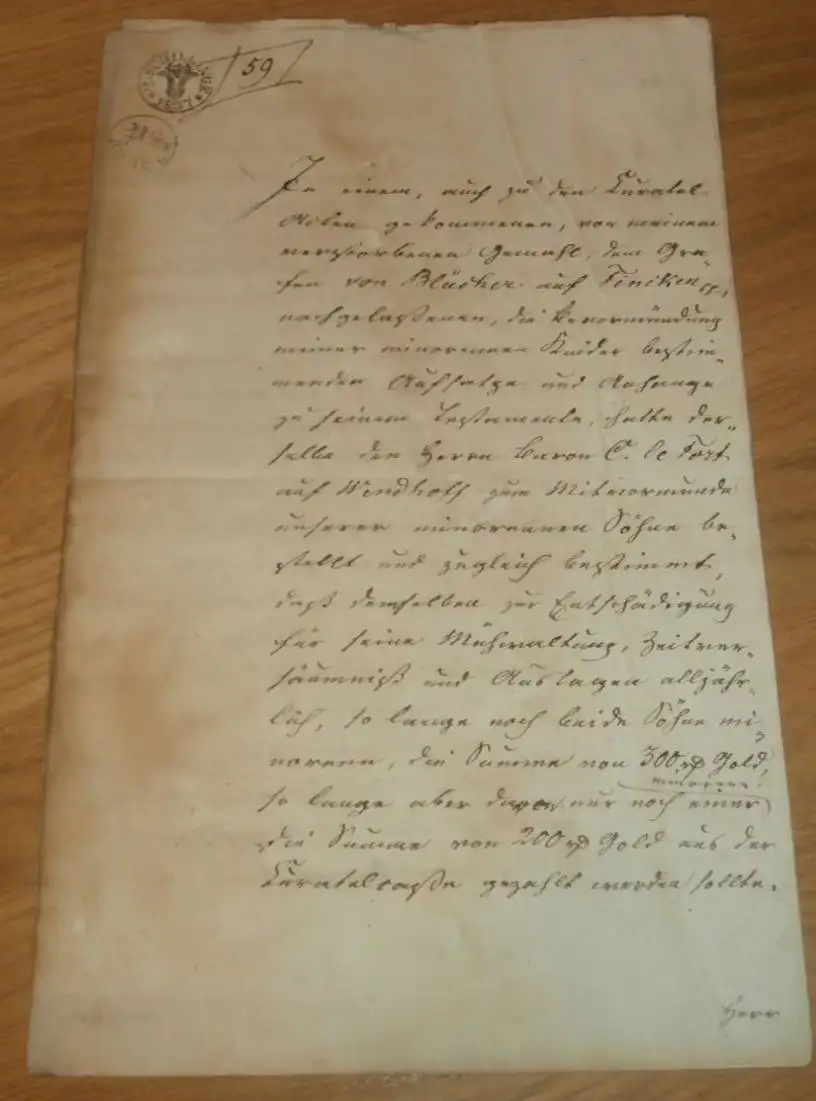 59
In einem, auch zu den Curatel-
Acten gekommenen, von meinem
verstorbenen Gemahl, dem Gra-
fen von Blücher auf Fincken pp,
nachgelaßenen, die Bevormündung
meiner minorennen Kinder bestim-
menden Aufsatze und Anhange
zu seinem Testamente, hatte der-
selbe den Herrn Baron C. le Fort
auf Wendhoff zum Mitvormunde
unserer minorennen Söhne be-
stellt und zugleich bestimmt,
daß demselben zur Entschädigung
für seine Mühwaltung, Zeitver-
säumniß und Auslagen alljähr-
lich, so lange noch beide Söhne mi-
norenn, die Summe von 300 rß Gold,
minorenn
so lange aber davon nur noch einer
die Summe von 200 rß Gold aus der
Curatelcasse gezahlt werden sollte.
Herr